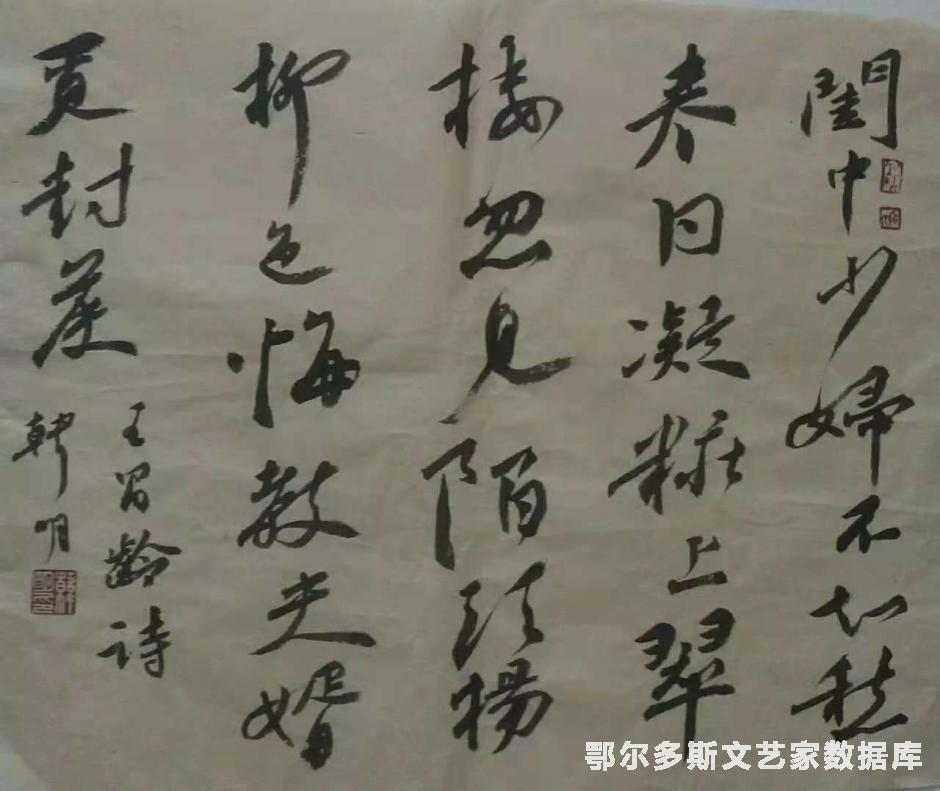 閨中少婦不知愁
春日凝粧上翠
楼忽見陌頭楊
柳色悔教夫婿
覓封侯
王昌齡诗
明
鄂尔多斯文艺家数据库